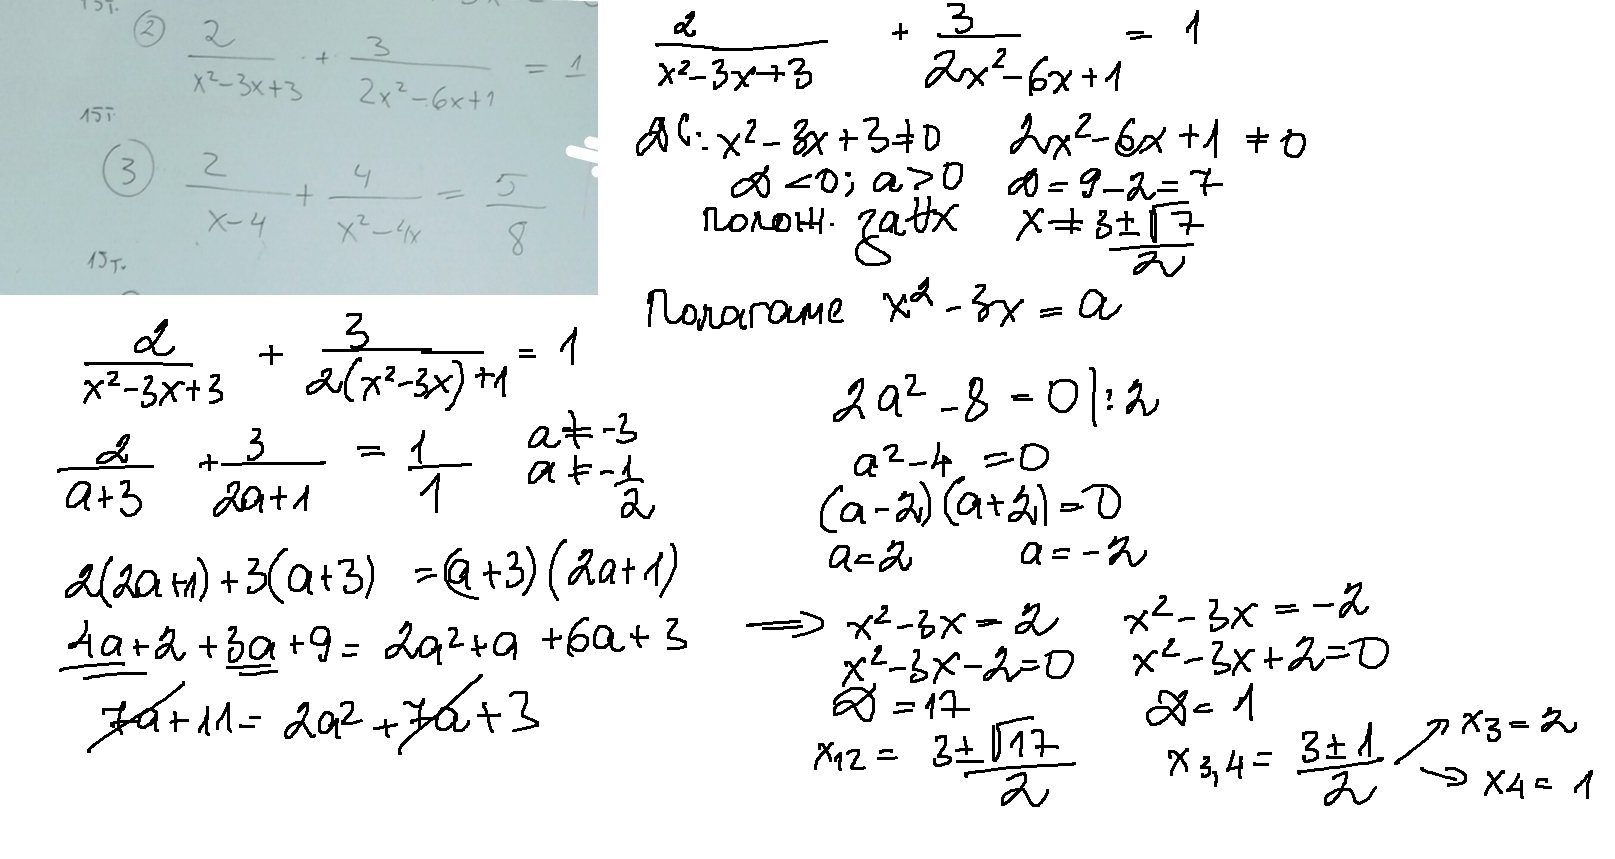 15т.
② 2/(x²-3x+3) + 3/(2x²-6x+1) = 1
15т
③ 2/(x-4) + 4/(x²-4x) = 5/8
15т.
2/(x²-3x+3) + 3/(2x²-6x+1) = 1
ДС: x²-3x+3≠0 2x²-6x+1 ≠ 0
D<0; a>0 D=9-2=7
полож. за ∀x x ≠ (3±√7)/2
Полагаме x²-3x = a
2/(x²-3x+3) + 3/(2(x²-3x)+1) = 1
2/(a+3) + 3/(2a+1) = 1/1 a≠-3
a≠-1/2
2(2a+1)+3(a+3) =(a+3)(2a+1)
4a+2+3a+9= 2a²+a+6a+3
7a+11= 2a²+7a+3
2a²-8=0|:2
a²-4=0
(a-2)(a+2)=0
a=2 a=-2
=> x²-3x=2 x²-3x=-2
x²-3x-2=0 x²-3x+2=0
D=17 D=1
x12= (3±√17)/2 x3,4= (3±1)/2 x3=2
x4=1